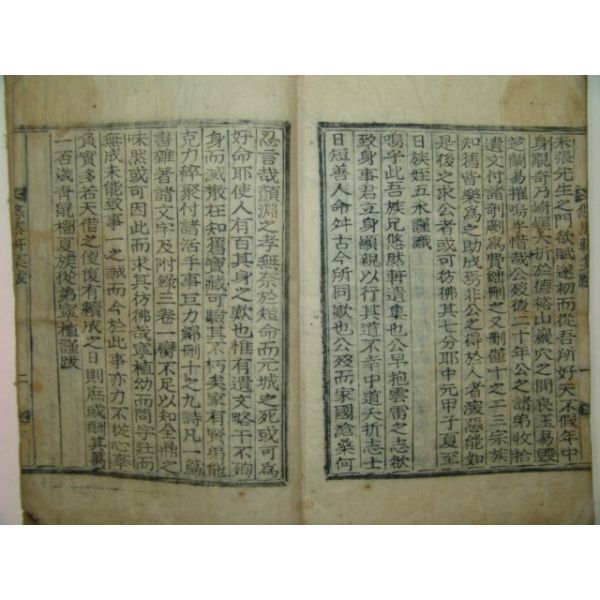 禾張先生之門欲賦遂初而從吾所好天不假年中
身覯奇乃崎嶇夭折於德裕山巖穴之間良玉易毀
芝蘭易摧嗚乎惜哉公歿後二十年公之諸弟收拾
遺文付諸剞劂爲費絀刪之又刪僅十之二三宗族
知舊皆樂爲之助成焉非公之得於人者深惡能如
是後之求公者或可彷彿其七分耶中元甲子夏至
日族姪五永謹識
嗚乎此吾族兄悠然軒遺集也公早抱雲雷之志欲
致身事君立身顯親以行其道不幸中道夭折志士
日短善人命舛古今所同歎也公歿而家國滄桑何
忍言哉顏淵之孝無奈於短命而元城之死或可爲
好命耶使人有百其身之歎也惟有遺文略干不殉
身而滅散在知舊寶藏可驗其不朽矣家有賢弟能
克力粹聚付諸活手事巨力綿刪十之九詩凡一篇
書雜著諸文字及附錄三卷一臠不足以知全鼎之
味然或可因此而求其彷彿哉寧植幼而問字壯而
無成未能致事一之誠而今於此事亦力不從心辜
負實多若天借之便復有續成之日則庶或酬其萬
一否歲靑鼠榴夏族從弟寧植謹跋
悠然軒集跋
二
一